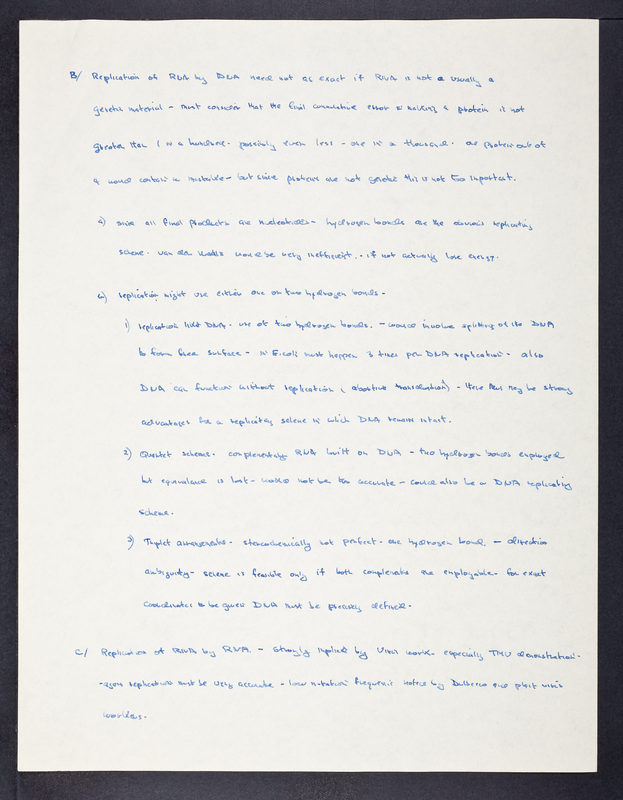 B/ Replication of RNA by DNA need not as exact if RNA is not a usually a
genetic material - must consider that the final cumulative error in making a protein is not
greater than 1 in a hundred. possibly even less - one in a thousand. one protein out of
a would contain a mistake - but since proteins are not genetic this is not too important.
a) since all final products are nucleotides - hydrogen bonds are the obvious replicating
scheme. van der Waals would be very inefficient. - if not actually lose energy.
b) replication might use either one or two hydrogen bonds -
1) replication like DNA. use of two hydrogen bonds. - would involve splitting of the DNA
to form free surface - in E.coli must happen 3 times per DNA replication - also
DNA can function without replication (abortive transduction) - Hence there may be strong
advantages for a replicating scheme in which DNA remains intact.
2) Quartet scheme. complementary RNA built on DNA - two hydrogen bonds employed
but equivalence is lost - would not be too accurate - could also be a DNA replicating
scheme.
3) Triplet arrangements - stereochemically not perfect. one hydrogen bond. - direction
ambiguity - scheme is feasible only if both complements are employable - for exact
coordinates to be given DNA must be precisely defined.
C/ Replication of RNA by RNA. - Strongly implied by Virus work - especially TMV demonstration.
- again replication must be very accurate - low mutation frequencies noted by Dulbecco and plant virus
workers.